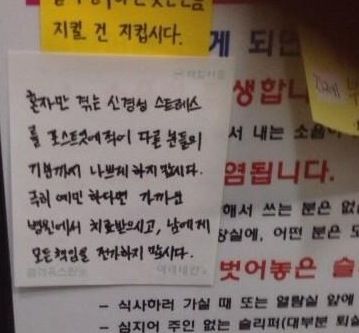 지킬 건 지킵시다.
게 되면
혼자만 겪는 신경성 스트레스
를 포스트잇에 적어 다른 분들의
기분까지 나쁘게 하지 맙시다.
극히 예민 하다면 가까운
병원에서 치료받으시고, 남에게
모든 책임을 전가하지 맙시다.
생합니
서 내는 소음이
염됩니다.
해서 쓰는 분은 없
장실에, 어떤 분은 도
벗어놓은 슬
– 식사하러 가실 때 또는 열람실 앞에
– 심지어 주인 없는 슬리퍼(대부분 퇴실